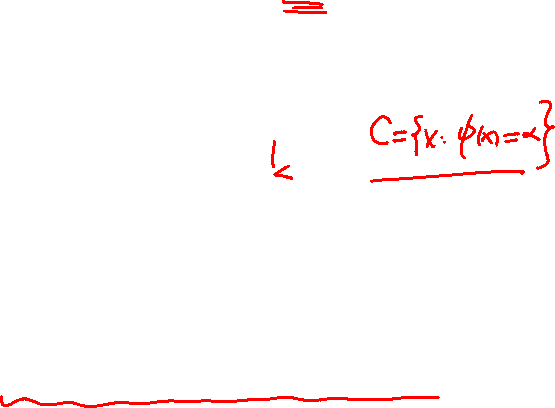 C={x: φ(x)=α}